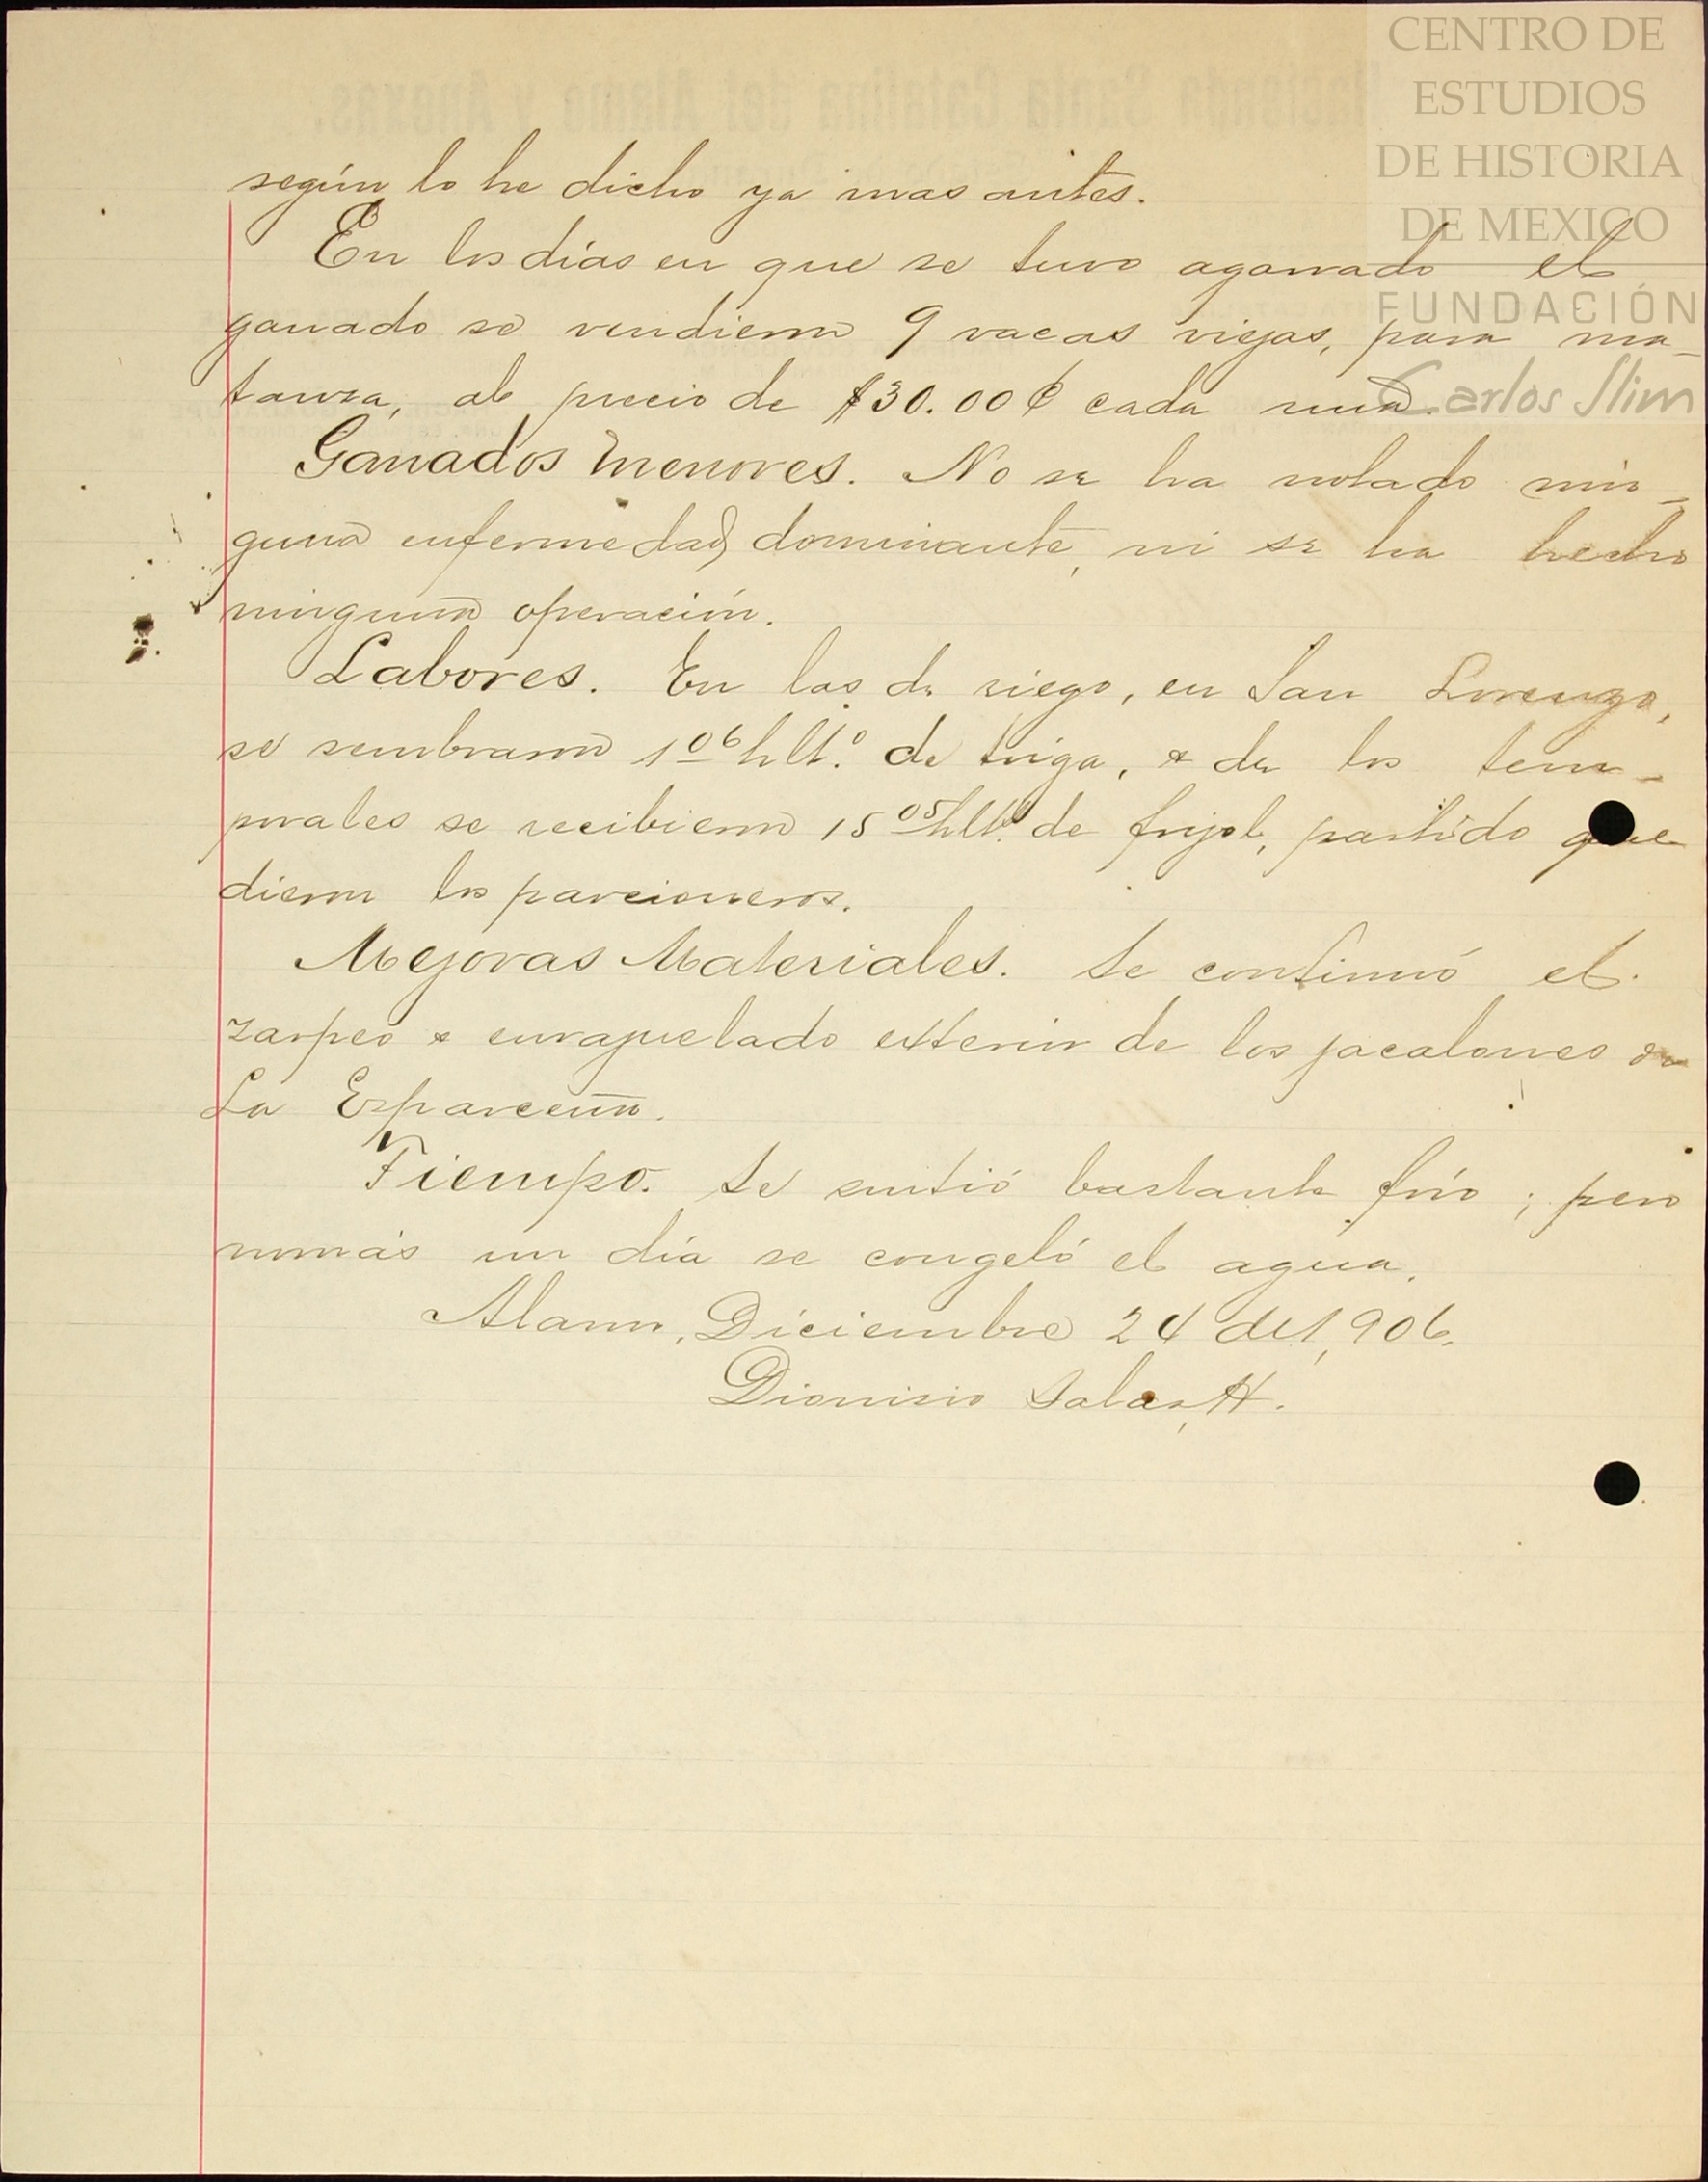 CENTRO DE
ESTUDIOS
DE HISTORIA
DE MEXICO
FUNDACIÓN
Carlos Slim
Hacienda Santa Catalina del Alamo y Anexas.
según lo he dicho ya mas antes.
En los días en que se tuvo agarrado el
ganado se vendieron 9 vacas viejas, para ma-
tanza, al precio de $30.00 ¢ cada una.
Ganados menores. No se ha notado nin-
guna enfermedad dominante, ni se ha hecho
ninguna operación.
Labores. En las de riego, en San Lorenzo,
se sembraron 1 06 hlt.º de trigo, & de los tem-
porales se recibieron 15 05 hlt.º de frijol, partido que
dieron los parcioneros.
Mejoras Materiales. Se continuó el
zarpeo & enrajuelado exterior de los jacalones de
La Esparceña.
Tiempo. Se sintió bastante frío; pero
nomás un día se congeló el agua.
Alamo, Diciembre 24 de 1,906.
Dionisio Salas, H.